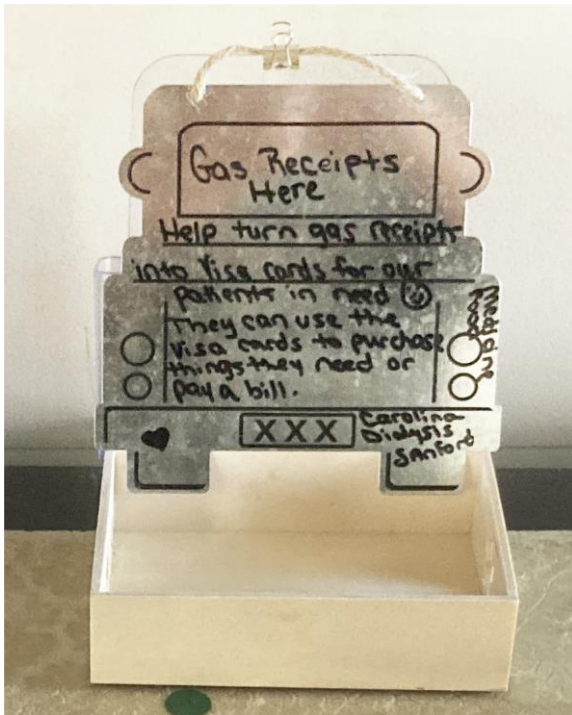 Gas Receipts
Here
Help turn gas receipts
into Visa cards for our
patients in need
They can use the
Visa cards to purchase
things they need or
pay a bill.
Medicine
Food
XXX
Carolina
Dialysis
Sanford